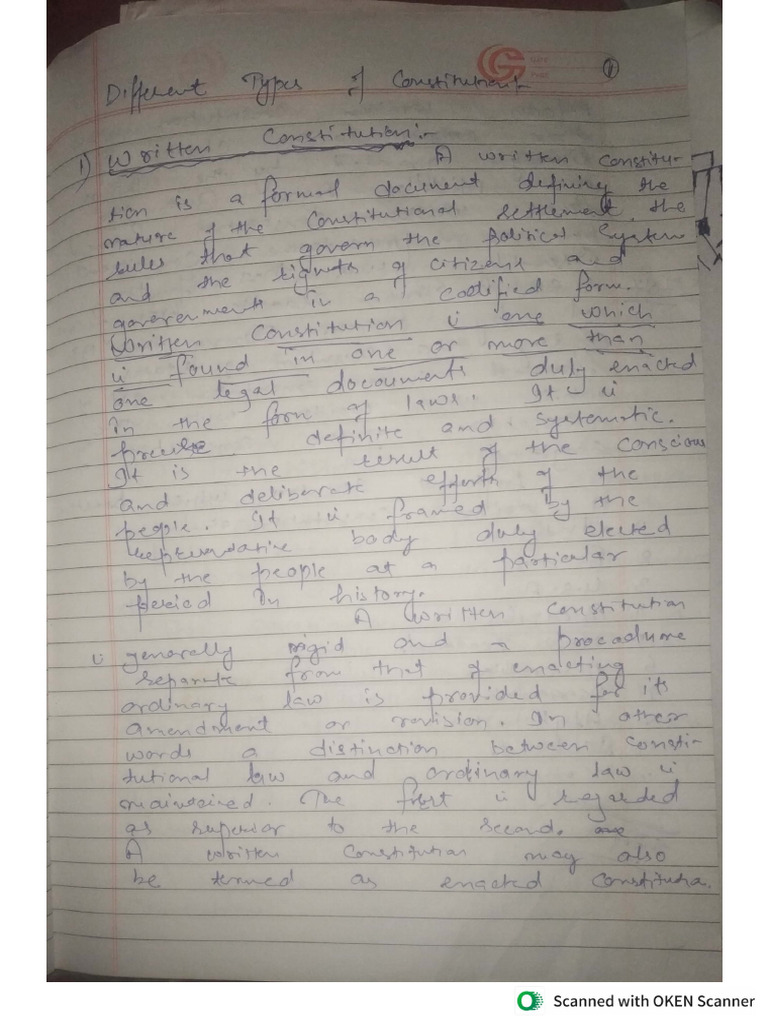 Different Types of Constitution:-
1
1) Written Constitution:-
A written constitu-
tion is a formal document defining the
nature of the constitutional settlement, the
rules that govern the political system
and the rights of citizens and
governments in a codified form.
Written Constitution is one which
is found in one or more than
one legal documents duly enacted
in the form of laws. It is
precise definite and systematic.
It is the result of the conscious
and deliberate efforts of the
people. It is framed by the
body duly elected
by the people at a particular
period in history.
A written constitution
is generally rigid and a procedure
separate from that of enacting
ordinary law is provided for its
amendment or revision. In other
words a distinction between consti-
tutional law and ordinary law is
maintained. The first is regarded
as superior to the second.
A written constitution may also
be termed as enacted
Scanned with OKEN Scanner